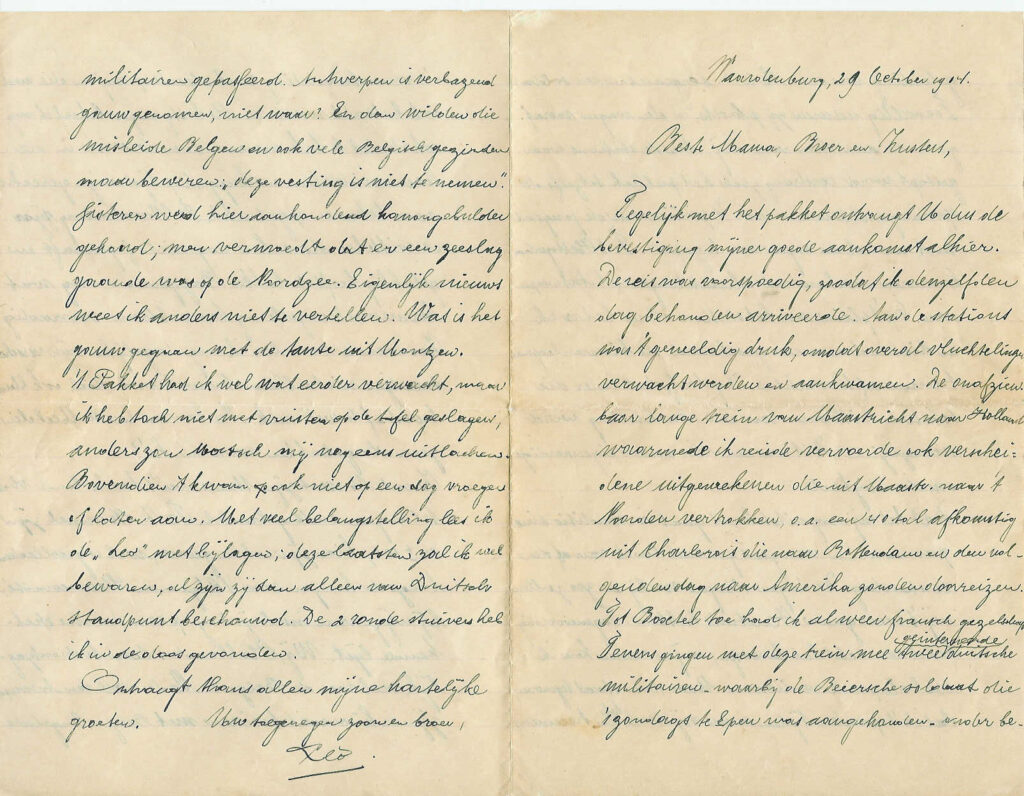 Waardenburg, 29 October 1914.
Beste Mama, Broer en Zusters,
Tegelijk met het pakket ontvangt U dus de
bevestiging mijner goede aankomst alhier.
De reis was voorspoedig, zoodat ik denzelfden
dag behouden arriveerde. Aan de stations
was 't geweldig druk, omdat overal vluchtelingen
verwacht werden en aankwamen. De onafzien
baar lange trein van Maastricht naar Holland
waarmede ik reisde vervoerde ook verschei-
dene uitgewekenen die uit Maastr. naar 't
Noorden vertrokken, o.a. een 40 tal afkomstig
uit Charlerois die naar Rotterdam en den vol-
genden dag naar Amerika zouden doorreizen.
Tot Boxtel toe had ik al weer fransch gezelschap
geinterneerde
Tevens gingen met deze trein mee twee duitsche
militairen - waarbij de Beiersche soldaat die
's zondags te Epen was aangehouden - onder be-
militairen gepasseerd. Antwerpen is verbazend
gauw genomen, niet waar? En dan wilden die
misleide Belgen en ook vele Belgisch gezinden
maar beweren: „deze vesting is niet te nemen."
Gisteren werd hier aanhoudend kanongebulder
gehoord; men vermoedt dat er een zeeslag
gaande was op de Noordzee. Eigenlijk nieuws
weet ik anders niet te vertellen. Wat is het
gauw gegaan met de tante uit Montzen.
't Pakket had ik wel wat eerder verwacht, maar
ik heb toch niet met vuisten op de tafel geslagen,
anders zou Matsch mij nog eens uitlachen.
Bovendien 't kwam ook niet op een dag vroeger
of later aan. Met veel belangstelling lees ik
de „Leo" met bijlagen; deze laatsten zal ik wel
bewaren, al zijn zij dan alleen van Duitsch
standpunt beschouwd. De 2 ronde stuivers heb
ik in de doos gevonden.
Ontvangt thans allen mijne hartelijke
groeten. Uw toegenegen zoon en broer,
Leo.